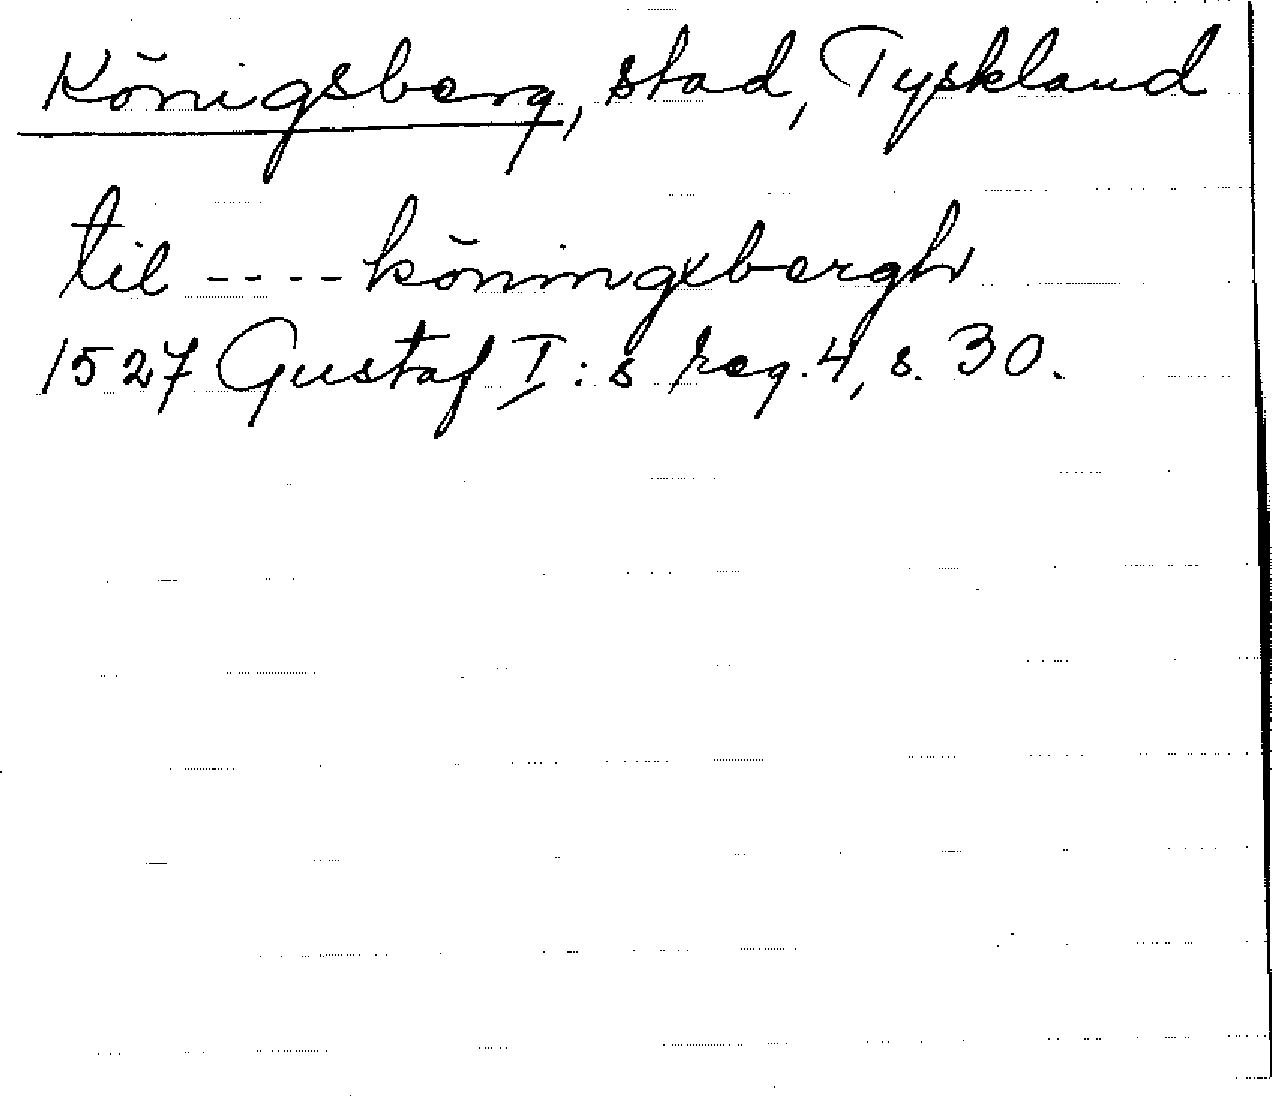 Königsberg, stad, Tyskland
til ---- köningxbergh
1527 Gustaf I:s reg. 4, s. 30.